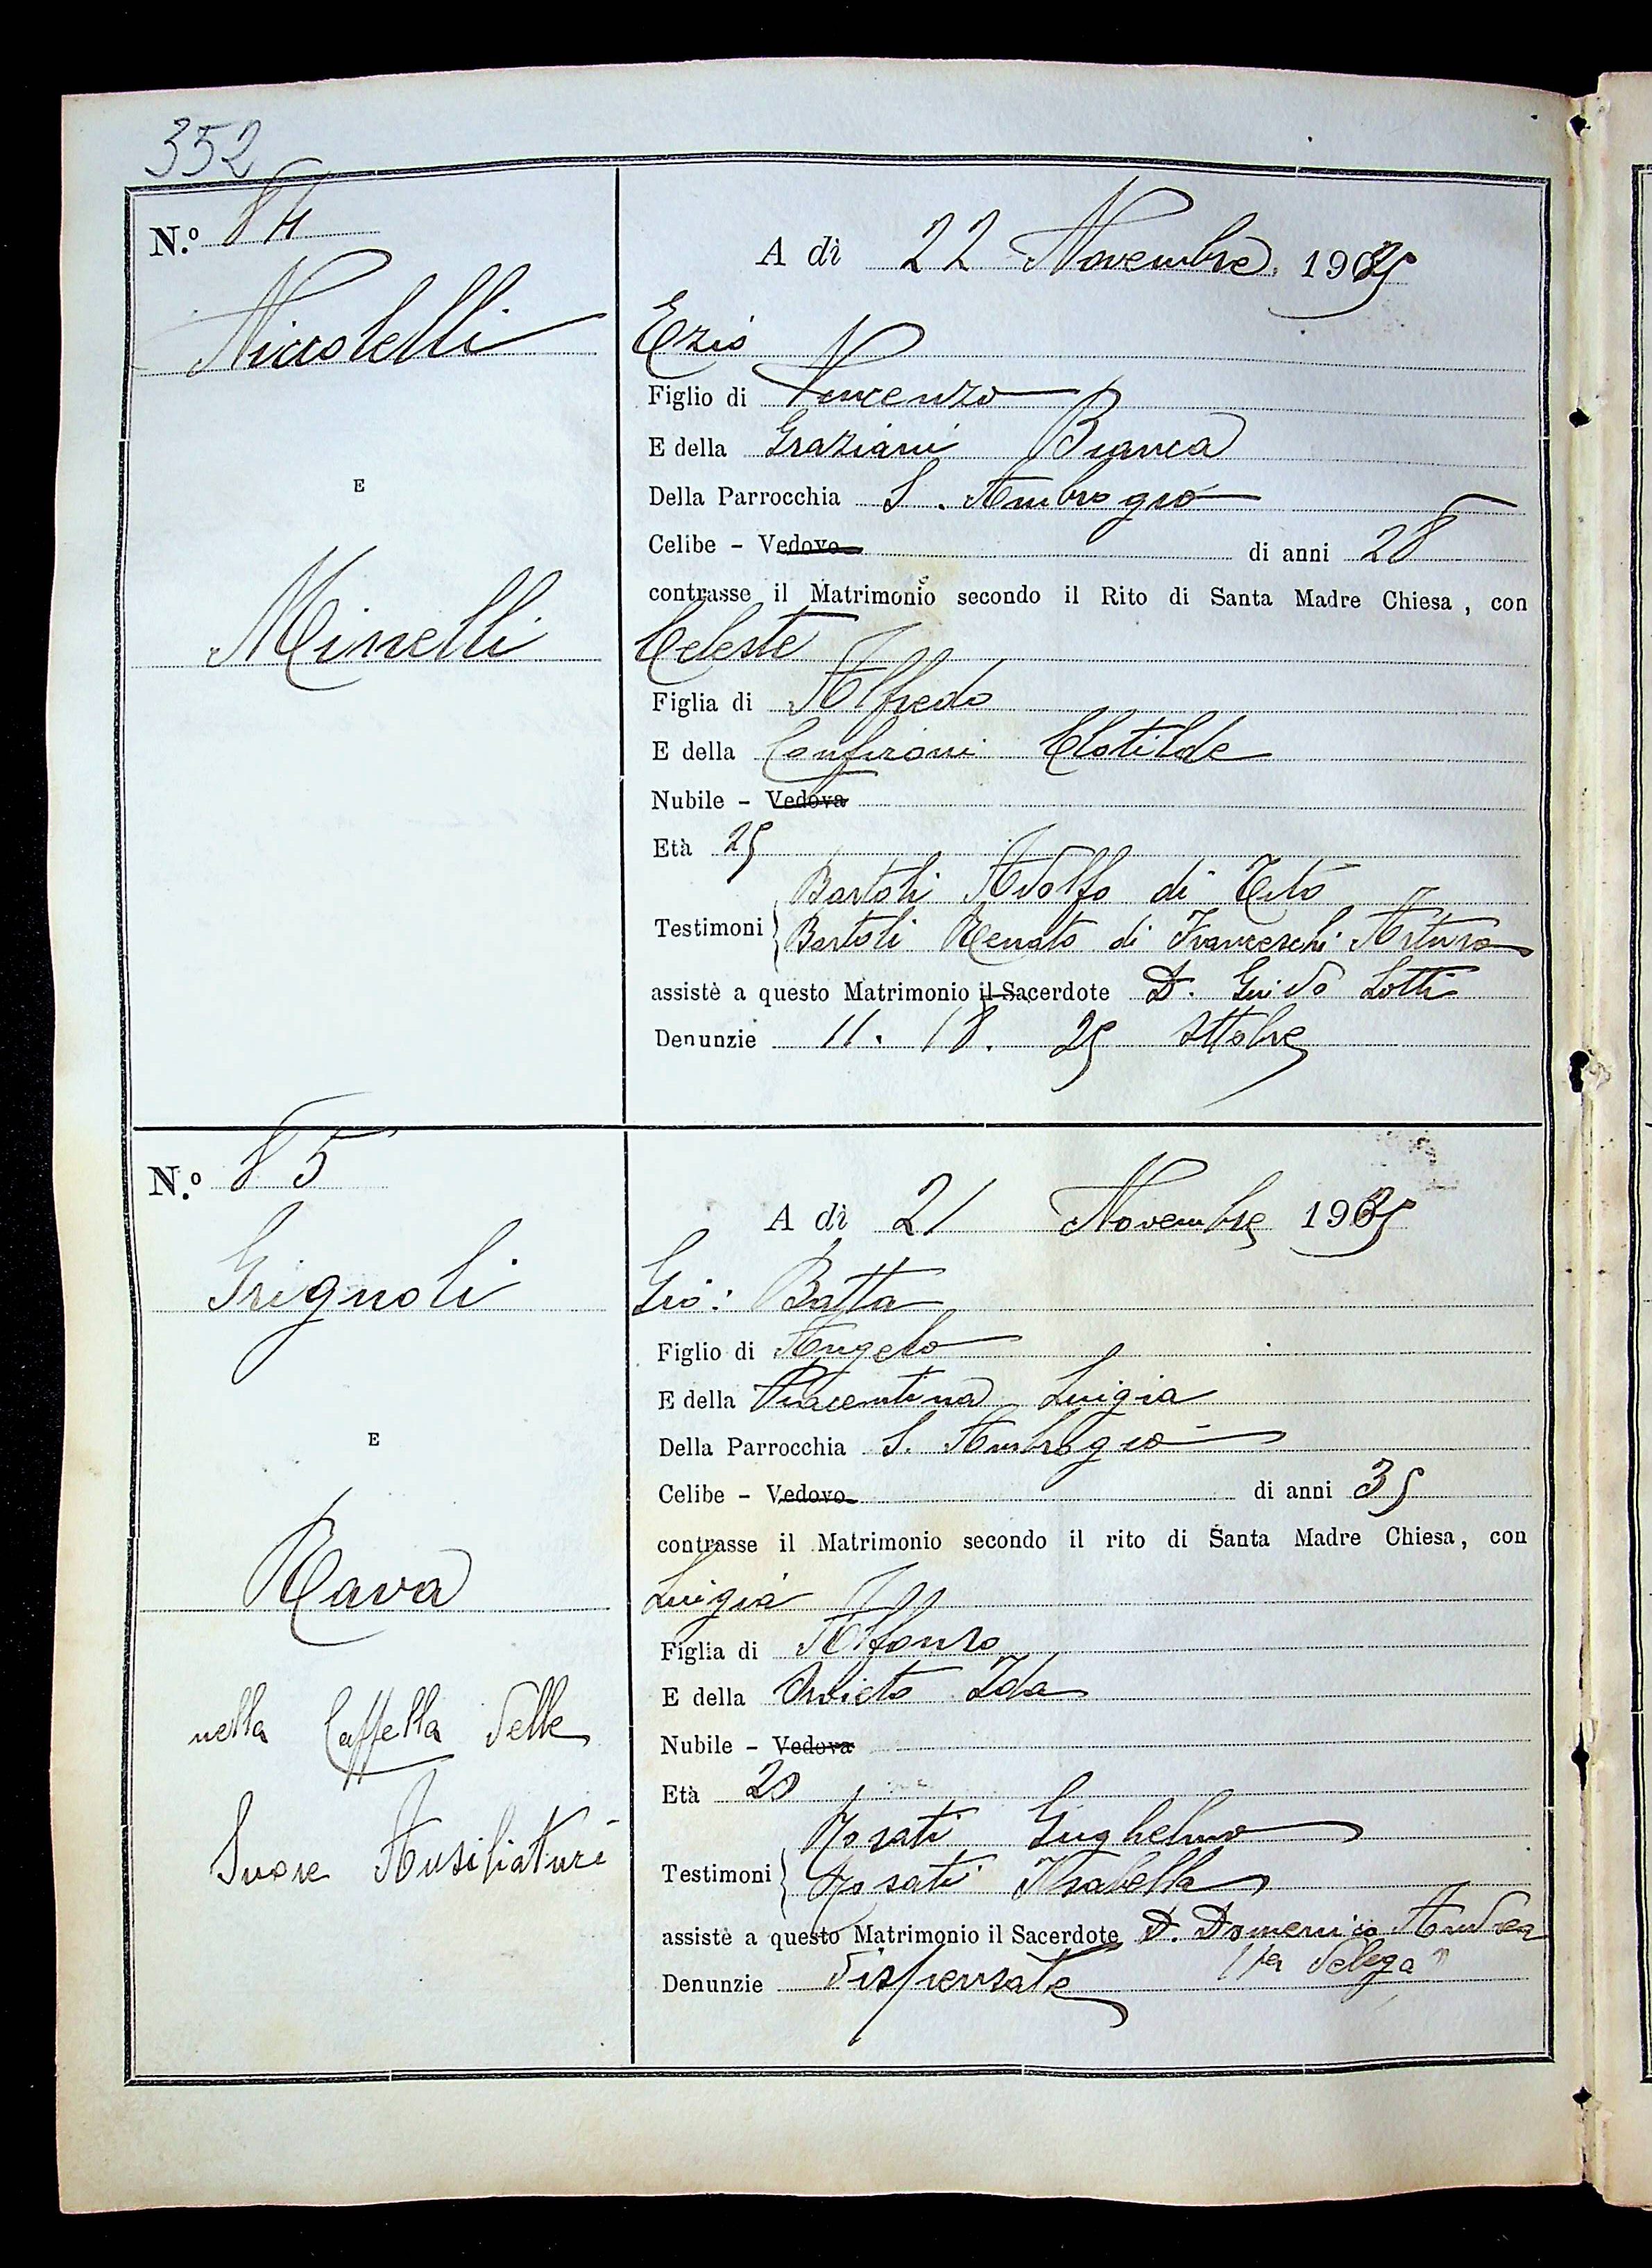 352
N.º 84
A dì 22 Novembre 1935
Niccolelli
Ezio
Figlio di Vincenzo
E della Graziani Bianca
E
Della Parrocchia S. Ambrogio
Celibe - Vedovo di anni 28
contrasse il Matrimonio secondo il Rito di Santa Madre Chiesa, con
Minelli
Celeste
Figlia di Alfredo
E della Clotilde
Nubile - Vedova
Età 25
Bartoli Adolfo di Tito
Testimoni
Bartoli Renato di Franceschi Artura
assistè a questo Matrimonio il Sacerdote D. Guido Lotti
Denunzie 11. 18. 25 Ottobre
N.º 85
A dì 21 Novembre 1935
Grignoli
Gio: Batta
Figlio di Angelo
E della Piacentina Luigia
E
Della Parrocchia S. Ambrogio
Celibe - Vedovo di anni 35
contrasse il Matrimonio secondo il rito di Santa Madre Chiesa, con
Rava
Luigia
Figlia di Alfonso
E della Ida
nella Cappella delle
Nubile - Vedova
Età
Suore
Rosati Guglielmo
Testimoni
Rosati Isabella
assistè a questo Matrimonio il Sacerdote D. Domenico Andrea
"per delega"
Denunzie dispensate